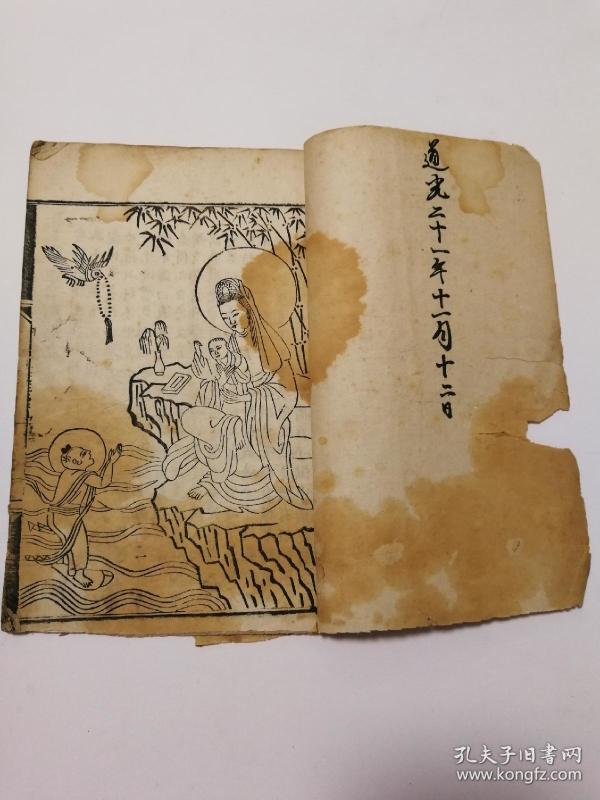 道光二十一年十一月十二日
孔夫子旧书网
www.kongfz.com